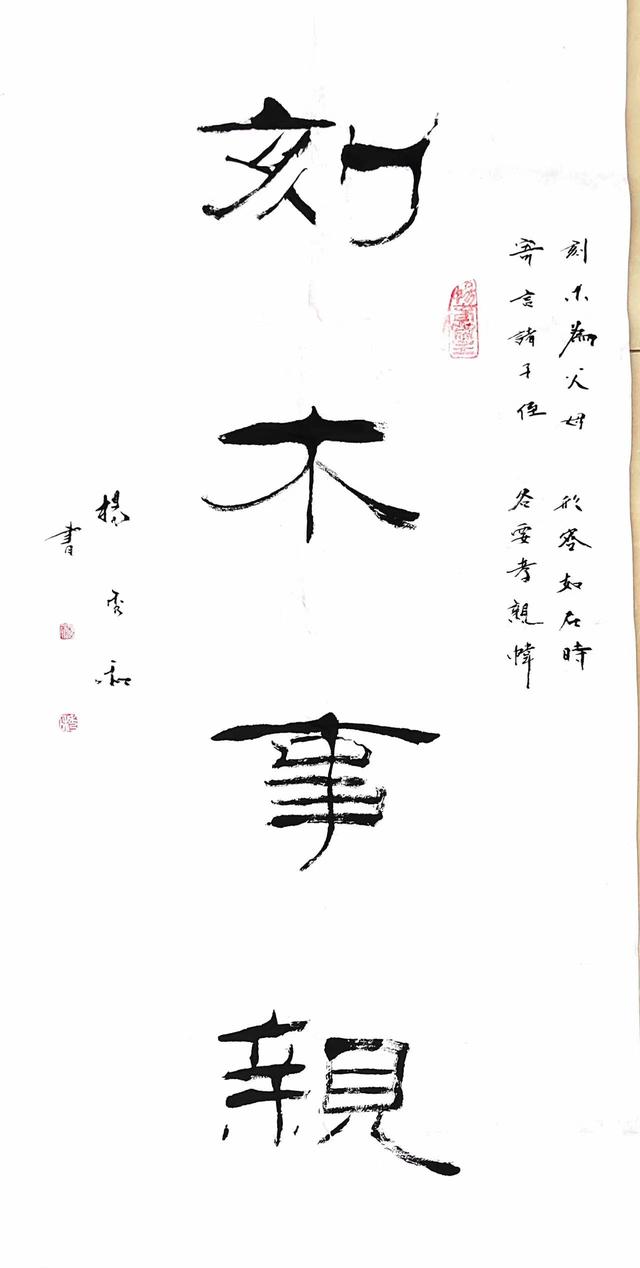 刻木為父母 形容如在時
寄言諸子侄 各要孝親幃
刻木事親
楊秀和
書